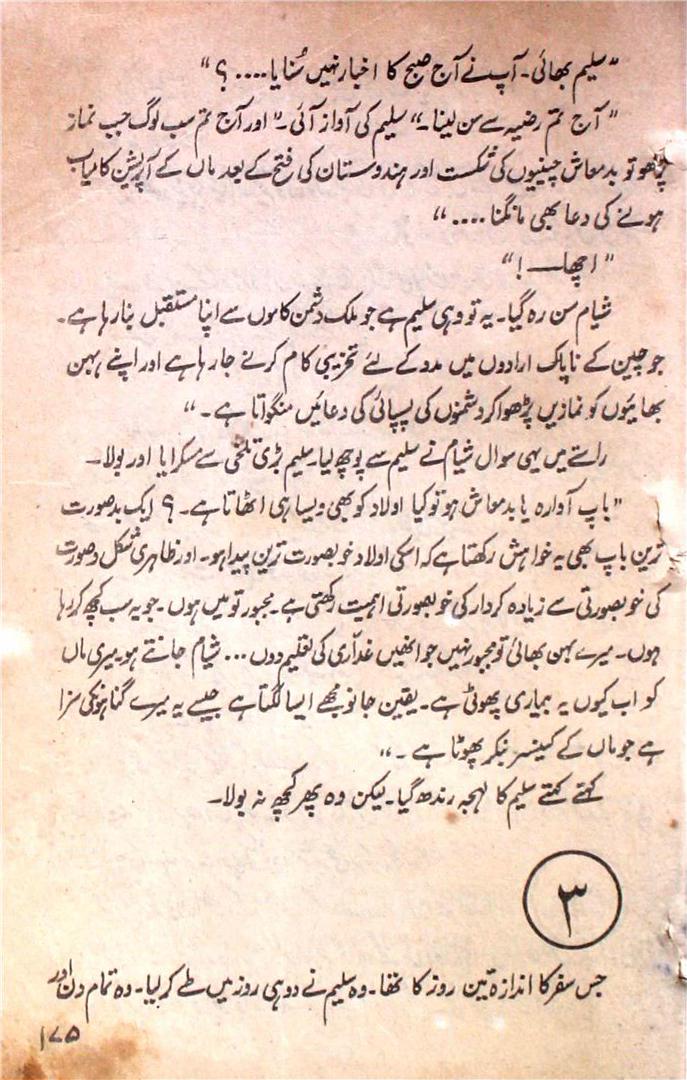 "سلیم بھائی۔ آپ نے آج صبح کا اخبار نہیں سُنایا....؟"
"آج تم رضیہ سے سن لینا۔" سلیم کی آواز آئی۔ "اور آج تم سب لوگ جب نماز
پڑھو تو بدمعاش چینیوں کی شکست اور ہندوستان کی فتح کے بعد ماں کے آپریشن کامیاب
ہونے کی دعا بھی مانگنا...."
"اچھا——!"
شیام سن رہ گیا۔ یہ تو وہی سلیم ہے جو ملک دشمن کاموں سے اپنا مستقبل بنا رہا ہے۔
جو چین کے ناپاک ارادوں میں مدد کے لئے تخریبی کام کرنے جا رہا ہے اور اپنے بہن
بھائیوں کو نمازیں پڑھوا کر دشمنوں کی پسپائی کی دعائیں منگواتا ہے۔"
راستے میں یہی سوال شیام نے سلیم سے پوچھ لیا۔ سلیم بڑی تلخی سے مسکرایا اور بولا۔
"باپ آوارہ یا بدمعاش ہو تو کیا اولاد کو بھی ویسا ہی اٹھاتا ہے۔؟ ایک بدصورت
ترین باپ بھی یہ خواہش رکھتا ہے کہ اسکی اولاد خوبصورت ترین پیدا ہو۔ اور ظاہری شکل و صورت
کی خوبصورتی سے زیادہ کردار کی خوبصورتی اہمیت رکھتی ہے۔ مجبور تو میں ہوں۔ جو یہ سب کچھ کر رہا
ہوں۔ میرے بہن بھائی تو مجبور نہیں جو انھیں غدّاری کی تعلیم دوں... شیام جانتے ہو۔ میری ماں
کو اب کیوں یہ بیماری پھوٹی ہے۔ یقین جانو مجھے ایسا لگتا ہے جیسے یہ میرے گناہونکی سزا
ہے جو ماں کے کینسر بنکر پھوٹا ہے۔"
کہتے کہتے سلیم کا لہجہ رندھ گیا۔ لیکن وہ پھر کچھ نہ بولا۔
۳
جس سفر کا اندازہ تین روز کا تھا۔ وہ سلیم نے دو ہی روز میں طے کر لیا۔ وہ تمام دن اور
۱۷۵